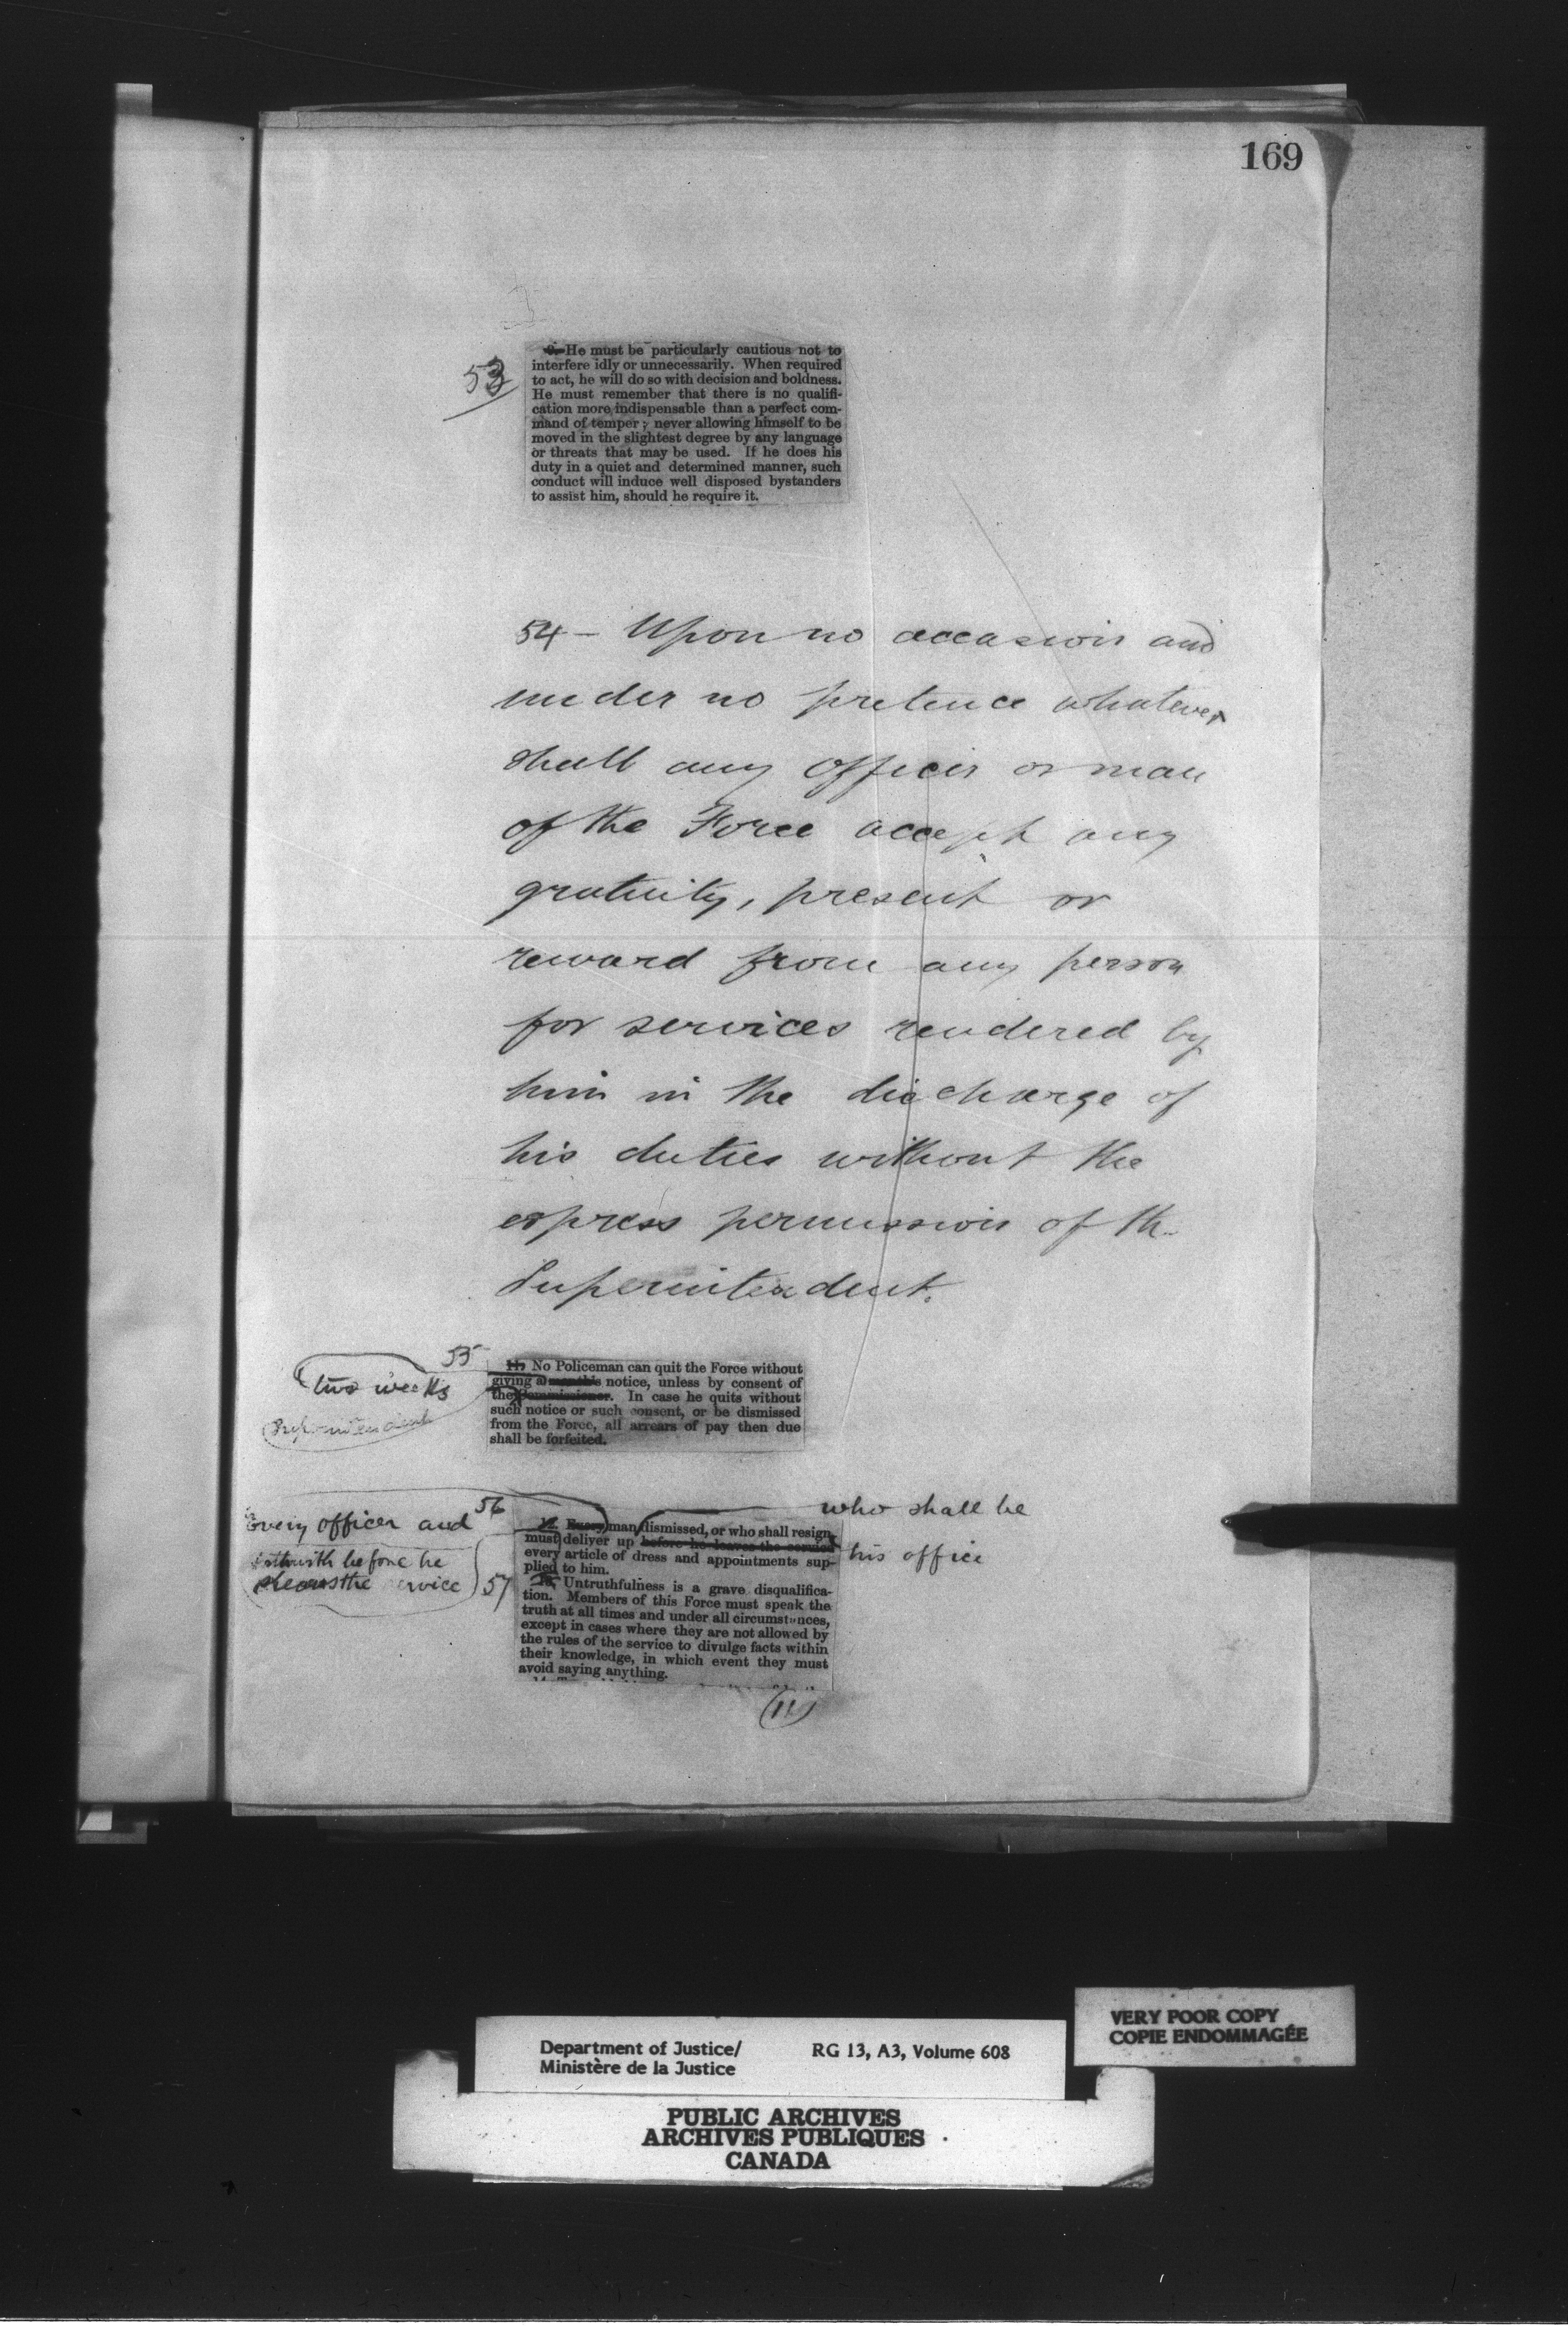 169
53
9. He must be particularly cautious not to
interfere idly or unnecessarily. When required
to act, he will do so with decision and boldness.
He must remember that there is no qualifi-
cation more indispensable than a perfect com-
mand of temper; never allowing himself to be
moved in the slightest degree by any language
or threats that may be used. If he does his
duty in a quiet and determined manner, such
conduct will induce well disposed bystanders
to assist him, should he require it.
54 – Upon no occasion and
under no pretence whatever
shall any officer or man
of the Force accept any
gratuity, present or
reward from any person
for services rendered by
him in the discharge of
his duties without the
express permission of the
Superintendent.
55
two weeks
Superintendent
11. No Policeman can quit the Force without
giving a month's notice, unless by consent of
the Commissioner. In case he quits without
such notice or such consent, or be dismissed
from the Force, all arrears of pay then due
shall be forfeited.
56
Every officer and
who shall be
his office
before he
the service
57
12. Every man dismissed, or who shall resign
must deliver up before he leaves the service
every article of dress and appointments sup-
plied to him.
13. Untruthfulness is a grave disqualifica-
tion. Members of this Force must speak the
truth at all times and under all circumstances,
except in cases where they are not allowed by
the rules of the service to divulge facts within
their knowledge, in which event they must
avoid saying anything.
(11)
Department of Justice/
Ministère de la Justice
RG 13, A3, Volume 608
VERY POOR COPY
COPIE ENDOMMAGÉE
PUBLIC ARCHIVES
ARCHIVES PUBLIQUES
CANADA